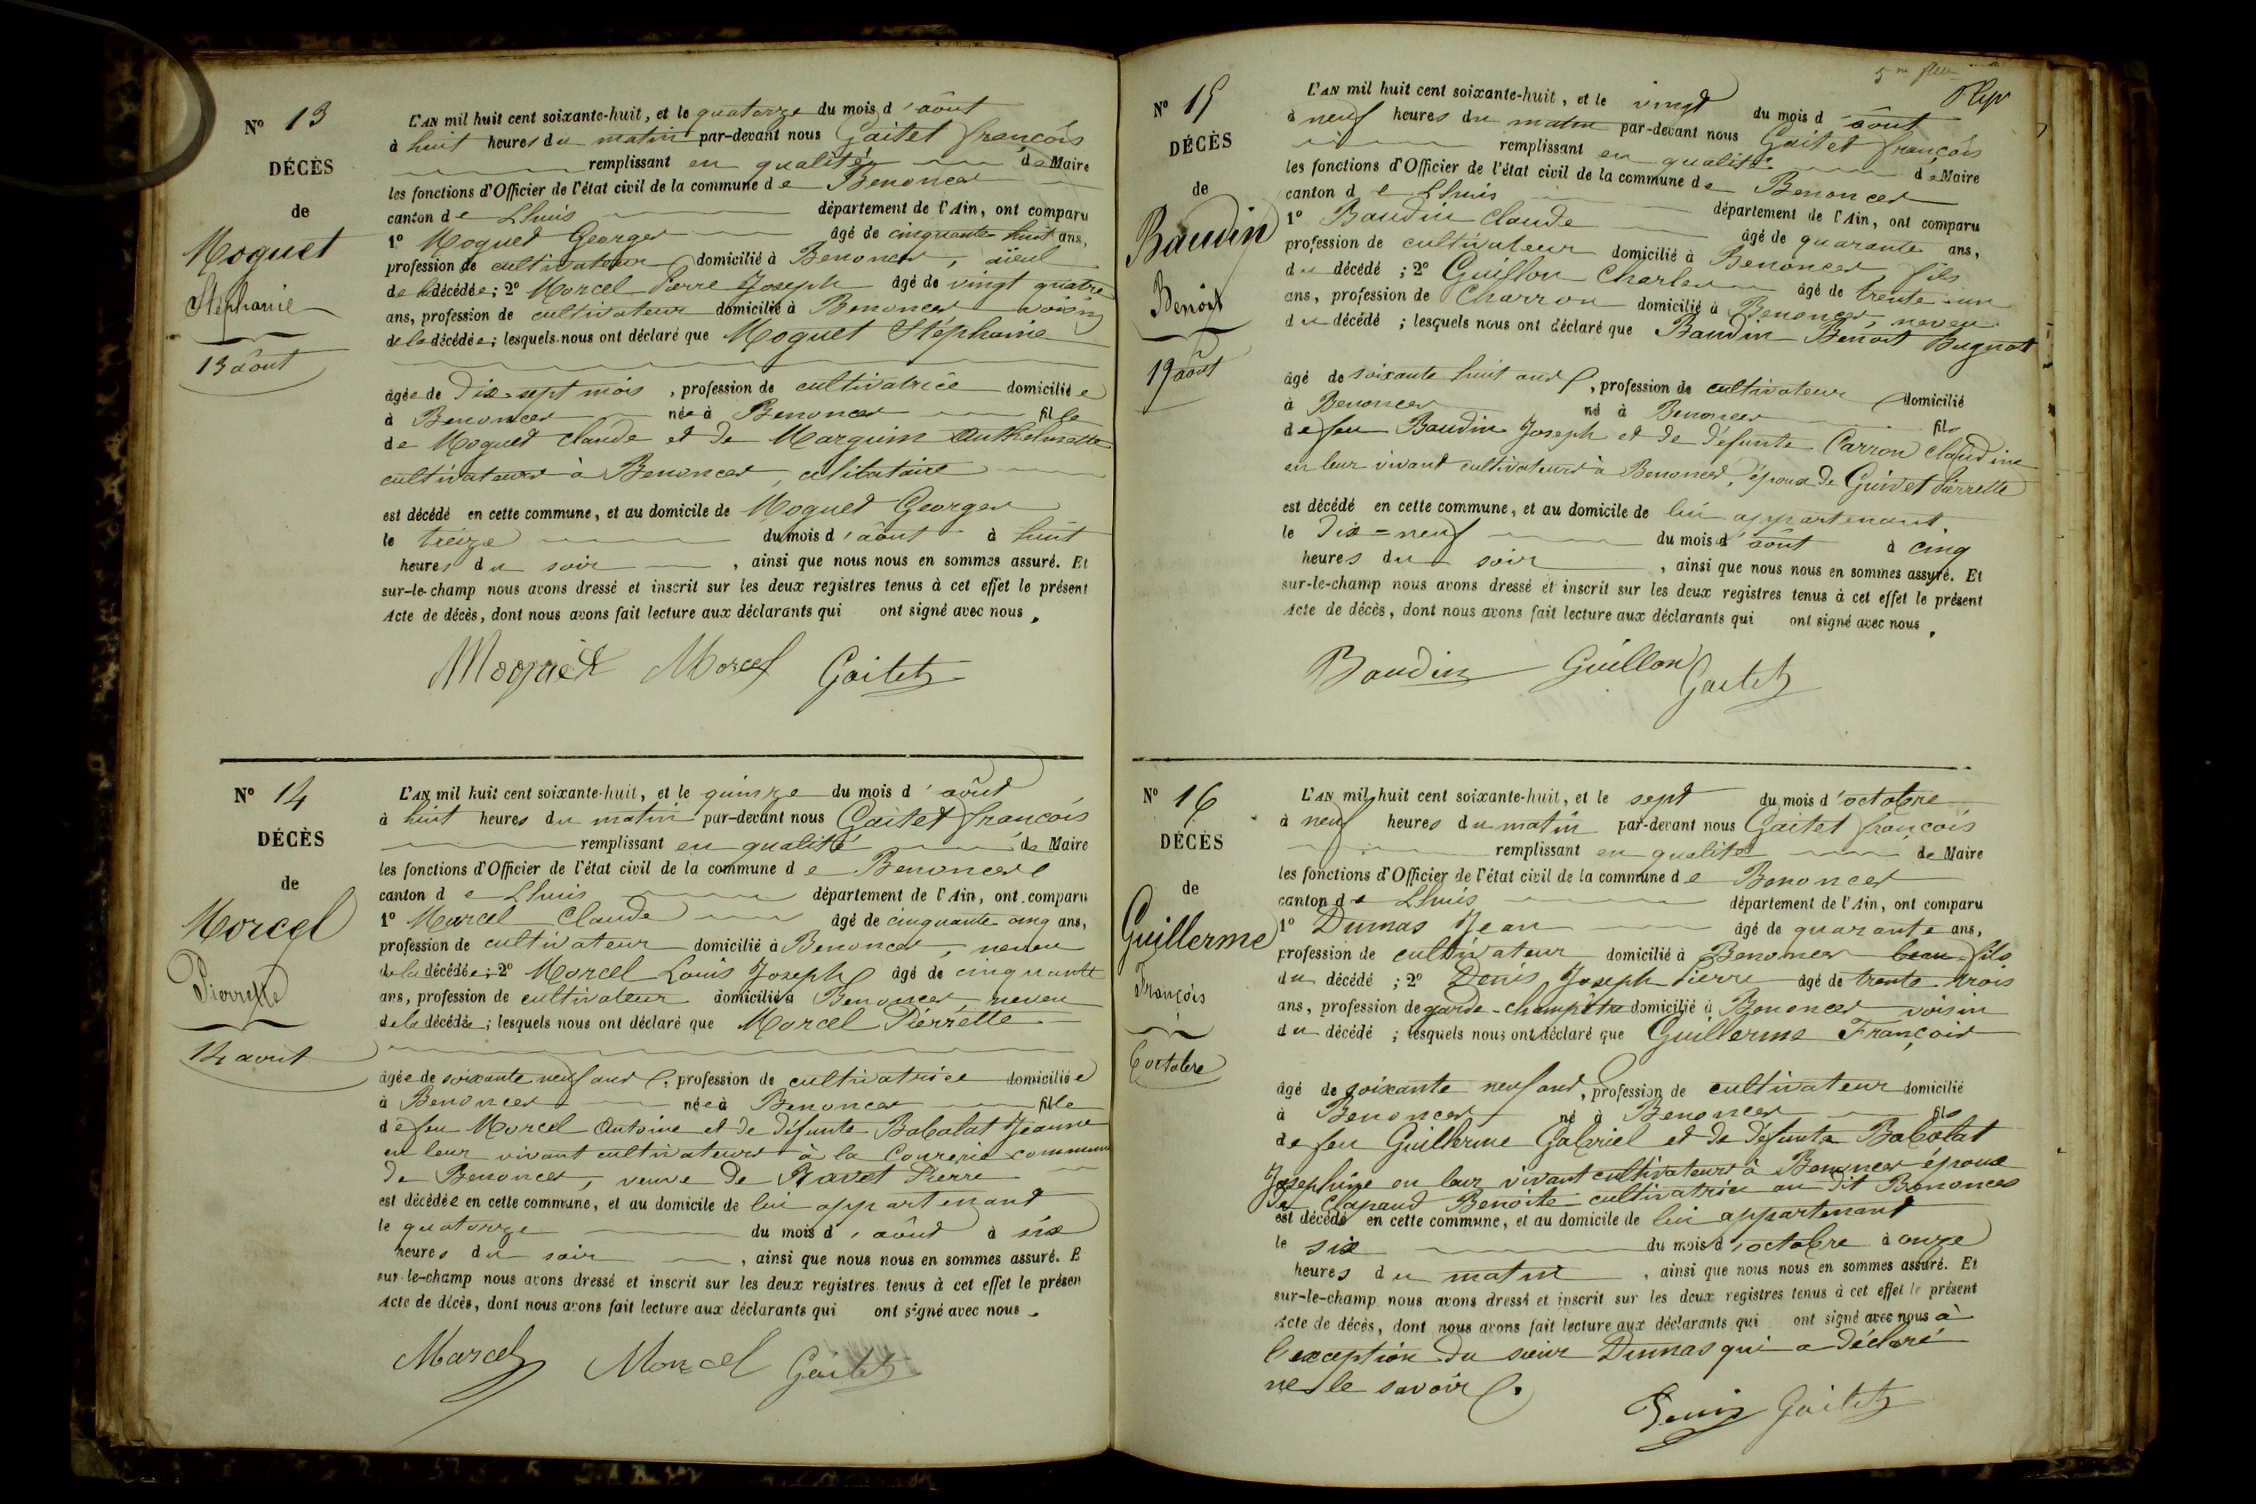 N° 13
DÉCÈS
de
Moquet
Stéphanie
13 août
L'AN mil huit cent soixante-huit, et le quatorze du mois d'août
à huit heures du matin par-devant nous Gaitet françois
remplissant en qualité de Maire
les fonctions d'Officier de l'état civil de la commune de Benonces
canton de Lhuis département de l'Ain, ont comparu
1° Moquet Georges âgé de cinquante huit ans,
profession de cultivateur domicilié à Benonces, aïeul
de la décédée; 2° Morcel Pierre Joseph âgé de vingt quatre
ans, profession de cultivateur domicilié à Benonces voisin
de la décédée; lesquels nous ont déclaré que Moquet Stéphanie
âgée de Dix-sept mois, profession de cultivatrice domiciliée
à Benonces née à Benonces fille
de Moquet Claude et de Marguin Anthelmette
cultivateurs à Benonces, célibataire
est décédé en cette commune, et au domicile de Moquet Georges
le treize du mois d'août à huit
heures du soir, ainsi que nous nous en sommes assuré. Et
sur-le-champ nous avons dressé et inscrit sur les deux registres tenus à cet effet le présent
Acte de décès, dont nous avons fait lecture aux déclarants qui ont signé avec nous.
Moquet Morcel Gaitet
N° 14
DÉCÈS
de
Morcel
Pierrette
14 aout
L'AN mil huit cent soixante-huit, et le quinze du mois d'août
à huit heures du matin par-devant nous Gaitet françois
remplissant en qualité de Maire
les fonctions d'Officier de l'état civil de la commune de Benonces
canton de Lhuis département de l'Ain, ont comparu
1° Marcel Claude âgé de cinquante cinq ans,
profession de cultivateur domicilié à Benonces, neveu
de la décédée; 2° Morcel Louis Joseph âgé de cinquante
ans, profession de cultivateur domicilié à Benonces neveu
de la décédée; lesquels nous ont déclaré que Morcel Pierrette
âgée de soixante neuf ans, profession de cultivatrice domiciliée
à Benonces née à Benonces fille
de feu Morcel Antoine et de défunte Babolat Jeanne
en leur vivant cultivateurs à la Courerie commune
de Benonces, veuve de Ravet Pierre
est décédée en cette commune, et au domicile de lui appartenant
le quatorze du mois d'août à six
heures du soir, ainsi que nous nous en sommes assuré. E
sur-le-champ nous avons dressé et inscrit sur les deux registres tenus à cet effet le présen
Acte de décès, dont nous avons fait lecture aux déclarants qui ont signé avec nous.
Marcel Morcel Gaitet
5me
N° 15
DÉCÈS
de
Baudin
Benoit
19 août
L'AN mil huit cent soixante-huit, et le vingt du mois d'août
à neuf heures du matin par-devant nous Gaitet françois
remplissant en qualité de Maire
les fonctions d'Officier de l'état civil de la commune de Benonces
canton de Lhuis département de l'Ain, ont comparu
1° Baudin Claude âgé de quarante ans,
profession de cultivateur domicilié à Benonces, fils
du décédé; 2° Guillon Charles âgé de trente-un
ans, profession de Charron domicilié à Benonces, neveu
du décédé; lesquels nous ont déclaré que Baudin Benoit Bugnot
âgé de soixante huit ans, profession de cultivateur domicilié
à Benonces né à Benonces fils
de feu Baudin Joseph et de défunte Carron Claudine
en leur vivant cultivateurs à Benonces, époux de Guivet Pierrette
est décédé en cette commune, et au domicile de lui appartenant.
le Dix=neuf du mois d'août à cinq
heures du soir, ainsi que nous nous en sommes assuré. Et
sur-le-champ nous avons dressé et inscrit sur les deux registres tenus à cet effet le présent
Acte de décès, dont nous avons fait lecture aux déclarants qui ont signé avec nous.
Baudin Guillon Gaitet
N° 16
DÉCÈS
de
Guillerme
François
6 octobre
L'AN mil huit cent soixante-huit, et le sept du mois d'octobre
à neuf heures du matin par-devant nous Gaitet françois
remplissant en qualité de Maire
les fonctions d'Officier de l'état civil de la commune de Benonces
canton de Lhuis département de l'Ain, ont comparu
1° Dumas Jean âgé de quarante ans,
profession de cultivateur domicilié à Benonces beau-fils
du décédé; 2° Denis Joseph Pierre âgé de trente trois
ans, profession de garde-champêtre domicilié à Benonces voisin
du décédé; lesquels nous ont déclaré que Guillerme François
âgé de soixante neuf ans, profession de cultivateur domicilié
à Benonces né à Benonces fils
de feu Guillerme Gabriel et de défunte Babolat
Josephine en leur vivant cultivateurs à Benonces époux
de Clapaud Benoite cultivatrice au dit Benonces
est décédé en cette commune, et au domicile de lui appartenant
le six du mois d'octobre à onze
heures du matin, ainsi que nous nous en sommes assuré. Et
sur-le-champ nous avons dressé et inscrit sur les deux registres tenus à cet effet le présent
Acte de décès, dont nous avons fait lecture aux déclarants qui ont signé avec nous à
l'exception du sieur Dumas qui a déclaré
ne le savoir.
Denis Gaitet